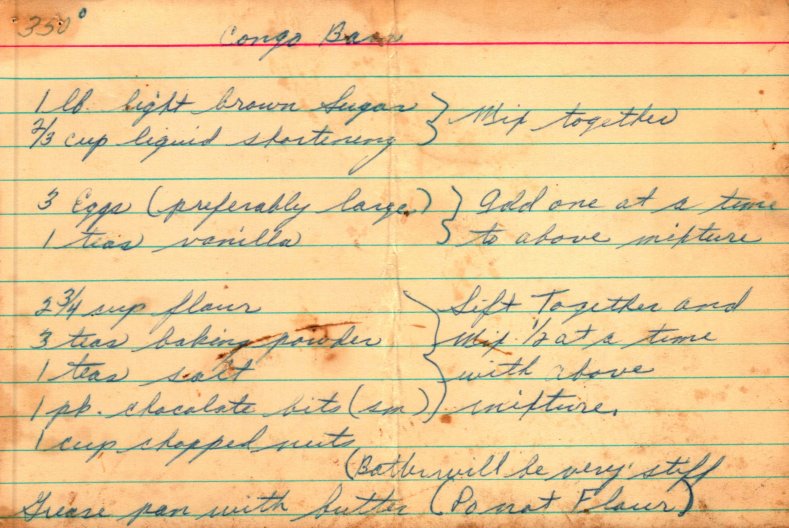 350°
Congo Bars
1 lb. light brown Sugar } Mix together
2/3 cup liquid shortening }
3 Eggs (preferably large) } Add one at a time
1 teas vanilla } to above mixture
2 3/4 cup flour } Sift Together and
3 teas baking powder } Mix 1/2 at a time
1 teas salt } with above
1 pk. chocolate bits (sm) } mixture.
1 cup chopped nuts
(Batter will be very stiff
Grease pan with butter (Do not Flour)